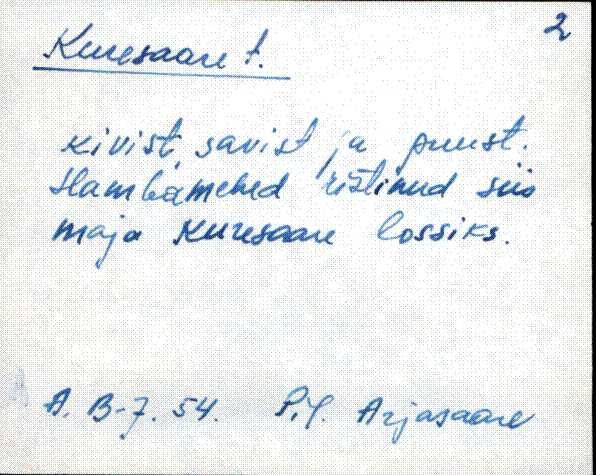 2
Kuresaare t.
kivist, savist ja puust.
Hambamehed ristinud siis
maja Kuresaare lossiks.
A. B-7. 54. Arjasaare